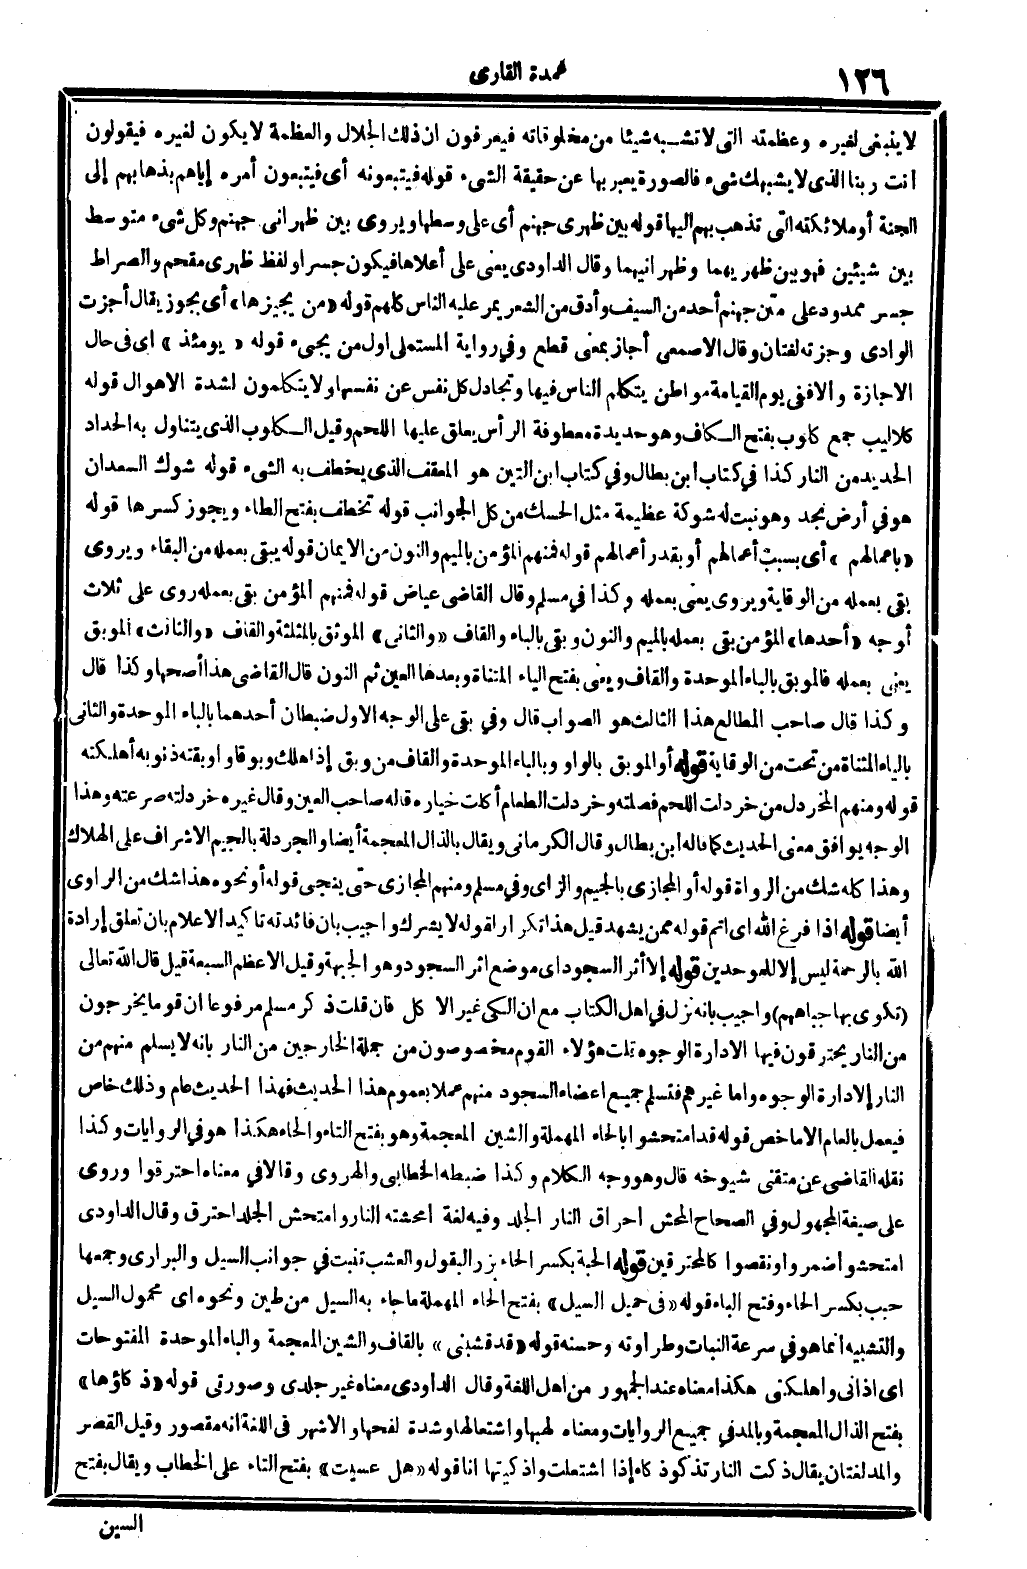 ١٢٦
عمدة القارى
لا ينبغى لغيره وعظمته التى لا تشبه شيئا من مخلوقاته فيعرفون ان ذلك الجلال والعظمة لا يكون لغيره فيقولون
أنت ربنا الذى لا يشبهك شىء فالصورة يعبر بها عن حقيقة الشىء قوله فيتبعونه أى فيتبعون أمره إياهم بذهابهم إلى
الجنة أو ملائكته التى تذهب بهم اليها قوله بين ظهرى جهنم أى على وسطها ويروى بين ظهرانى جهنم وكل شىء متوسط
بين شيئين فهو بين ظهريهما وظهرانيهما وقال الداودى يعنى على أعلاها فيكون جسرا ولفظ ظهرى مقحم والصراط
جسر ممدود على متن جهنم أحد من السيف وأدق من الشعر يمر عليه الناس كلهم قوله «من يجيزها» أى يجوز يقال أجزت
الوادى وجزته لغتان وقال الاصمعى أجاز بمعنى قطع وفي رواية المستملى اول من يجىء قوله « يومئذ » اى فى حال
الاجازة والا ففى يوم القيامة مواطن يتكلم الناس فيها وتجادل كل نفس عن نفسها ولا يتكلمون لشدة الاهوال قوله
كلاليب جمع كلوب بفتح الكاف وهو حديدة معطوفة الرأس يعلق عليها اللحم وقيل الكلوب الذى يتناول به الحداد
الحديد من النار كذا في كتاب ابن بطال وفي كتاب ابن التين هو المعقف الذى يخطف به الشىء قوله شوك السعدان
هو في أرض نجد وهو نبت له شوكة عظيمة مثل الحسك من كل الجوانب قوله تخطف بفتح الطاء ويجوز كسرها قوله
«باعمالهم » أى بسبب أعمالهم أو بقدر أعمالهم قوله فمنهم المؤمن بالميم والنون من الايمان قوله يبقى بعمله من البقاء ويروى
يقى بعمله من الوقاية ويروى يعنى بعمله وكذا في مسلم وقال القاضى عياض قوله فمنهم المؤمن بقى بعمله روى على ثلاث
أوجه «أحدها» المؤمن بقى بعمله بالميم والنون وبقى بالباء والقاف «والثانى» الموثق بالمثلثة والقاف «والثالث» الموبق
يعنى بعمله فالموبق بالباء الموحدة والقاف ويعنى بفتح الياء المثناة وبعدها العين ثم النون قال القاضى هذا أصحها وكذا قال
وكذا قال صاحب المطالع هذا الثالث هو الصواب قال وفي بقى على الوجه الاول ضبطان أحدهما بالباء الموحدة والثانى
بالياء المثناة من تحت من الوقاية قوله أو الموبق بالواو وبالباء الموحدة والقاف من وبق إذا هلك وبوقا وأوبقته ذنوبه أهلكته
قوله ومنهم المخردل من خردلت اللحم فصلته وخردلت الطعام أكلت خياره قاله صاحب العين وقال غيره خردلته صرعته وهذا
الوجه يوافق معنى الحديث كما قاله ابن بطال وقال الكرمانى ويقال بالذال المعجمة أيضا والجردلة بالجيم الاشراف على الهلاك
وهذا كله شك من الرواة قوله أو المجازى بالجيم والزاى وفي مسلم ومنهم المجازى حتى ينجى قوله أو نحوه هذا شك من الراوى
أيضا قوله اذا فرغ الله اى اتم قوله ممن يشهد قيل هذا تكرار لقوله لا يشرك واجيب بان فائدته تاكيد الاعلام بان تعلق إرادة
الله بالرحمة ليس إلا للموحدين قوله إلا أثر السجود اى موضع اثر السجود وهو الجبهة وقيل الاعظم السبعة قيل قال الله تعالى
(تكوى بها جباههم) واجيب بانه نزل في اهل الكتاب مع ان الكى غير الاكل فان قلت ذكر مسلم مرفوعا ان قوما يخرجون
من النار يحترقون فيها الا دارة الوجوه قلت هؤلاء القوم مخصوصون من جملة الخارجين من النار بانه لا يسلم منهم من
النار إلا دارة الوجوه واما غيرهم فتسلم جميع اعضاء السجود منهم عملا بعموم هذا الحديث فهذا الحديث عام وذلك خاص
فيعمل بالعام الا ما خص قوله قد امتحشوا بالحاء المهملة والشين المعجمة وهو بفتح التاء والحاء هكذا هو في الروايات وكذا
نقله القاضى عن متقنى شيوخه قال وهو وجه الكلام وكذا ضبطه الخطابى والهروى وقالا في معناه احترقوا وروى
على صيغة المجهول وفي الصحاح المحش احراق النار الجلد وفيه لغة امحشته النار وامتحش الجلد احترق وقال الداودى
امتحشوا ضمروا ونقصوا كالمحترقين قوله الحبة بكسر الحاء بزر البقول والعشب تنبت في جوانب السيل والبرارى وجمعها
حبب بكسر الحاء وفتح الباء قوله «فى حميل السيل» بفتح الحاء المهملة ما جاء به السيل من طين ونحوه اى محمول السيل
والتشبيه انما هو في سرعة النبات وطراوته وحسنه قوله «قد قشبنى» بالقاف والشين المعجمة والباء الموحدة المفتوحات
اى اذانى واهلكنى هكذا معناه عند الجمهور من اهل اللغة وقال الداودى معناه غير جلدى وصورتى قوله «ذكاؤها»
بفتح الذال المعجمة وبالمد في جميع الروايات ومعناه لهبها واشتعالها وشدة لفحها والاشهر فى اللغة انه مقصور وقيل القصر
والمد لغتان يقال ذكت النار تذكو ذكاء إذا اشتعلت واذكيتها انا قوله «هل عسيت» بفتح التاء على الخطاب ويقال بفتح
السين